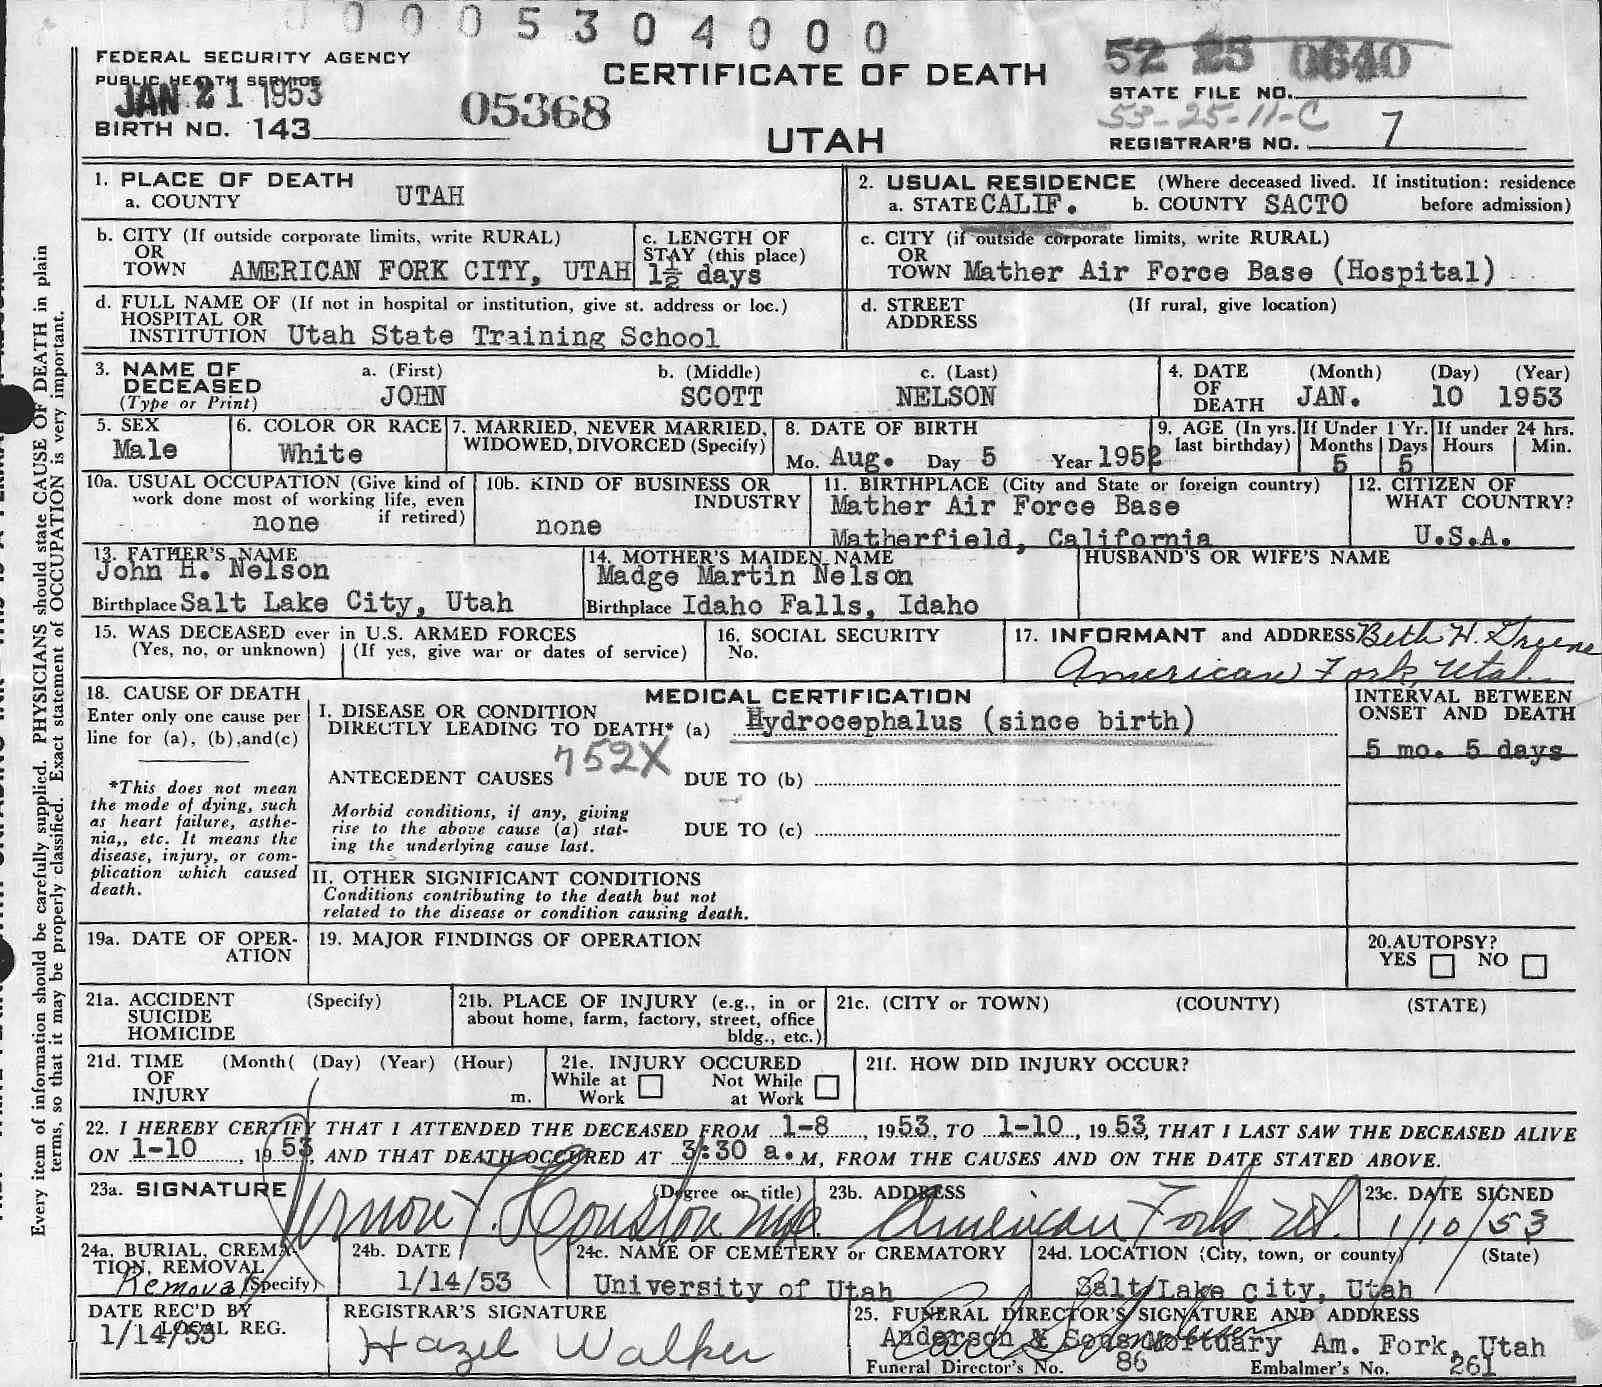 0 0 0 5 3 0 4 0 0 0
FEDERAL SECURITY AGENCY
PUBLIC HEALTH SERVICE
JAN 21 1953
BIRTH NO. 143
05368
CERTIFICATE OF DEATH
UTAH
52 25 0640
STATE FILE NO.
53-25-11-C
REGISTRAR'S NO. 7
1. PLACE OF DEATH
a. COUNTY UTAH
2. USUAL RESIDENCE (Where deceased lived. If institution: residence before admission)
a. STATE CALIF. b. COUNTY SACTO
b. CITY (If outside corporate limits, write RURAL)
OR
TOWN AMERICAN FORK CITY, UTAH
c. LENGTH OF
STAY (this place)
1½ days
c. CITY (if outside corporate limits, write RURAL)
OR
TOWN Mather Air Force Base (Hospital)
d. FULL NAME OF (If not in hospital or institution, give st. address or loc.)
HOSPITAL OR
INSTITUTION Utah State Training School
d. STREET (If rural, give location)
ADDRESS
3. NAME OF
DECEASED
(Type or Print)
a. (First) b. (Middle) c. (Last)
JOHN SCOTT NELSON
4. DATE (Month) (Day) (Year)
OF
DEATH JAN. 10 1953
5. SEX
Male
6. COLOR OR RACE
White
7. MARRIED, NEVER MARRIED,
WIDOWED, DIVORCED (Specify)
8. DATE OF BIRTH
Mo. Aug. Day 5 Year 1952
9. AGE (In yrs.
last birthday)
If Under 1 Yr.
Months Days
5 5
If under 24 hrs.
Hours Min.
10a. USUAL OCCUPATION (Give kind of
work done most of working life, even
if retired)
none
10b. KIND OF BUSINESS OR
INDUSTRY
none
11. BIRTHPLACE (City and State or foreign country)
Mather Air Force Base
Matherfield, California
12. CITIZEN OF
WHAT COUNTRY?
U.S.A.
13. FATHER'S NAME
John H. Nelson
Birthplace Salt Lake City, Utah
14. MOTHER'S MAIDEN NAME
Madge Martin Nelson
Birthplace Idaho Falls, Idaho
HUSBAND'S OR WIFE'S NAME
15. WAS DECEASED ever in U.S. ARMED FORCES
(Yes, no, or unknown) (If yes, give war or dates of service)
16. SOCIAL SECURITY
No.
17. INFORMANT and ADDRESS Beth H. Greene
American Fork, Utah
18. CAUSE OF DEATH
Enter only one cause per
line for (a), (b), and (c)
*This does not mean
the mode of dying, such
as heart failure, asthe-
nia,, etc. It means the
disease, injury, or com-
plication which caused
death.
MEDICAL CERTIFICATION
I. DISEASE OR CONDITION
DIRECTLY LEADING TO DEATH* (a) Hydrocephalus (since birth)
752X
ANTECEDENT CAUSES DUE TO (b)
Morbid conditions, if any, giving
rise to the above cause (a) stat-
ing the underlying cause last.
DUE TO (c)
II. OTHER SIGNIFICANT CONDITIONS
Conditions contributing to the death but not
related to the disease or condition causing death.
INTERVAL BETWEEN
ONSET AND DEATH
5 mo. 5 days
19a. DATE OF OPER-
ATION
19. MAJOR FINDINGS OF OPERATION
20. AUTOPSY?
YES NO
21a. ACCIDENT (Specify)
SUICIDE
HOMICIDE
21b. PLACE OF INJURY (e.g., in or
about home, farm, factory, street, office
bldg., etc.)
21c. (CITY or TOWN) (COUNTY) (STATE)
21d. TIME (Month( (Day) (Year) (Hour)
OF
INJURY m.
21e. INJURY OCCURED
While at Work Not While at Work
21f. HOW DID INJURY OCCUR?
22. I HEREBY CERTIFY THAT I ATTENDED THE DECEASED FROM 1-8, 1953, TO 1-10, 1953, THAT I LAST SAW THE DECEASED ALIVE
ON 1-10, 1953, AND THAT DEATH OCCURED AT 3:30 a.M, FROM THE CAUSES AND ON THE DATE STATED ABOVE.
23a. SIGNATURE (Degree or title)
Vernon F. Houston M.D.
23b. ADDRESS
American Fork Ut.
23c. DATE SIGNED
1/10/53
24a. BURIAL, CREMA-
TION, REMOVAL
(Specify)
Removal
24b. DATE
1/14/53
24c. NAME OF CEMETERY or CREMATORY
University of Utah
24d. LOCATION (City, town, or county) (State)
Salt Lake City, Utah
DATE REC'D BY
LOCAL REG.
1/14/53
REGISTRAR'S SIGNATURE
Hazel Walker
25. FUNERAL DIRECTOR'S SIGNATURE AND ADDRESS
Anderson & Sons Mortuary Am. Fork, Utah
Funeral Director's No. 86 Embalmer's No. 261
Every item of information should be carefully supplied. PHYSICIANS should state CAUSE OF DEATH in plain
terms, so that it may be properly classified. Exact statement of OCCUPATION is very important.